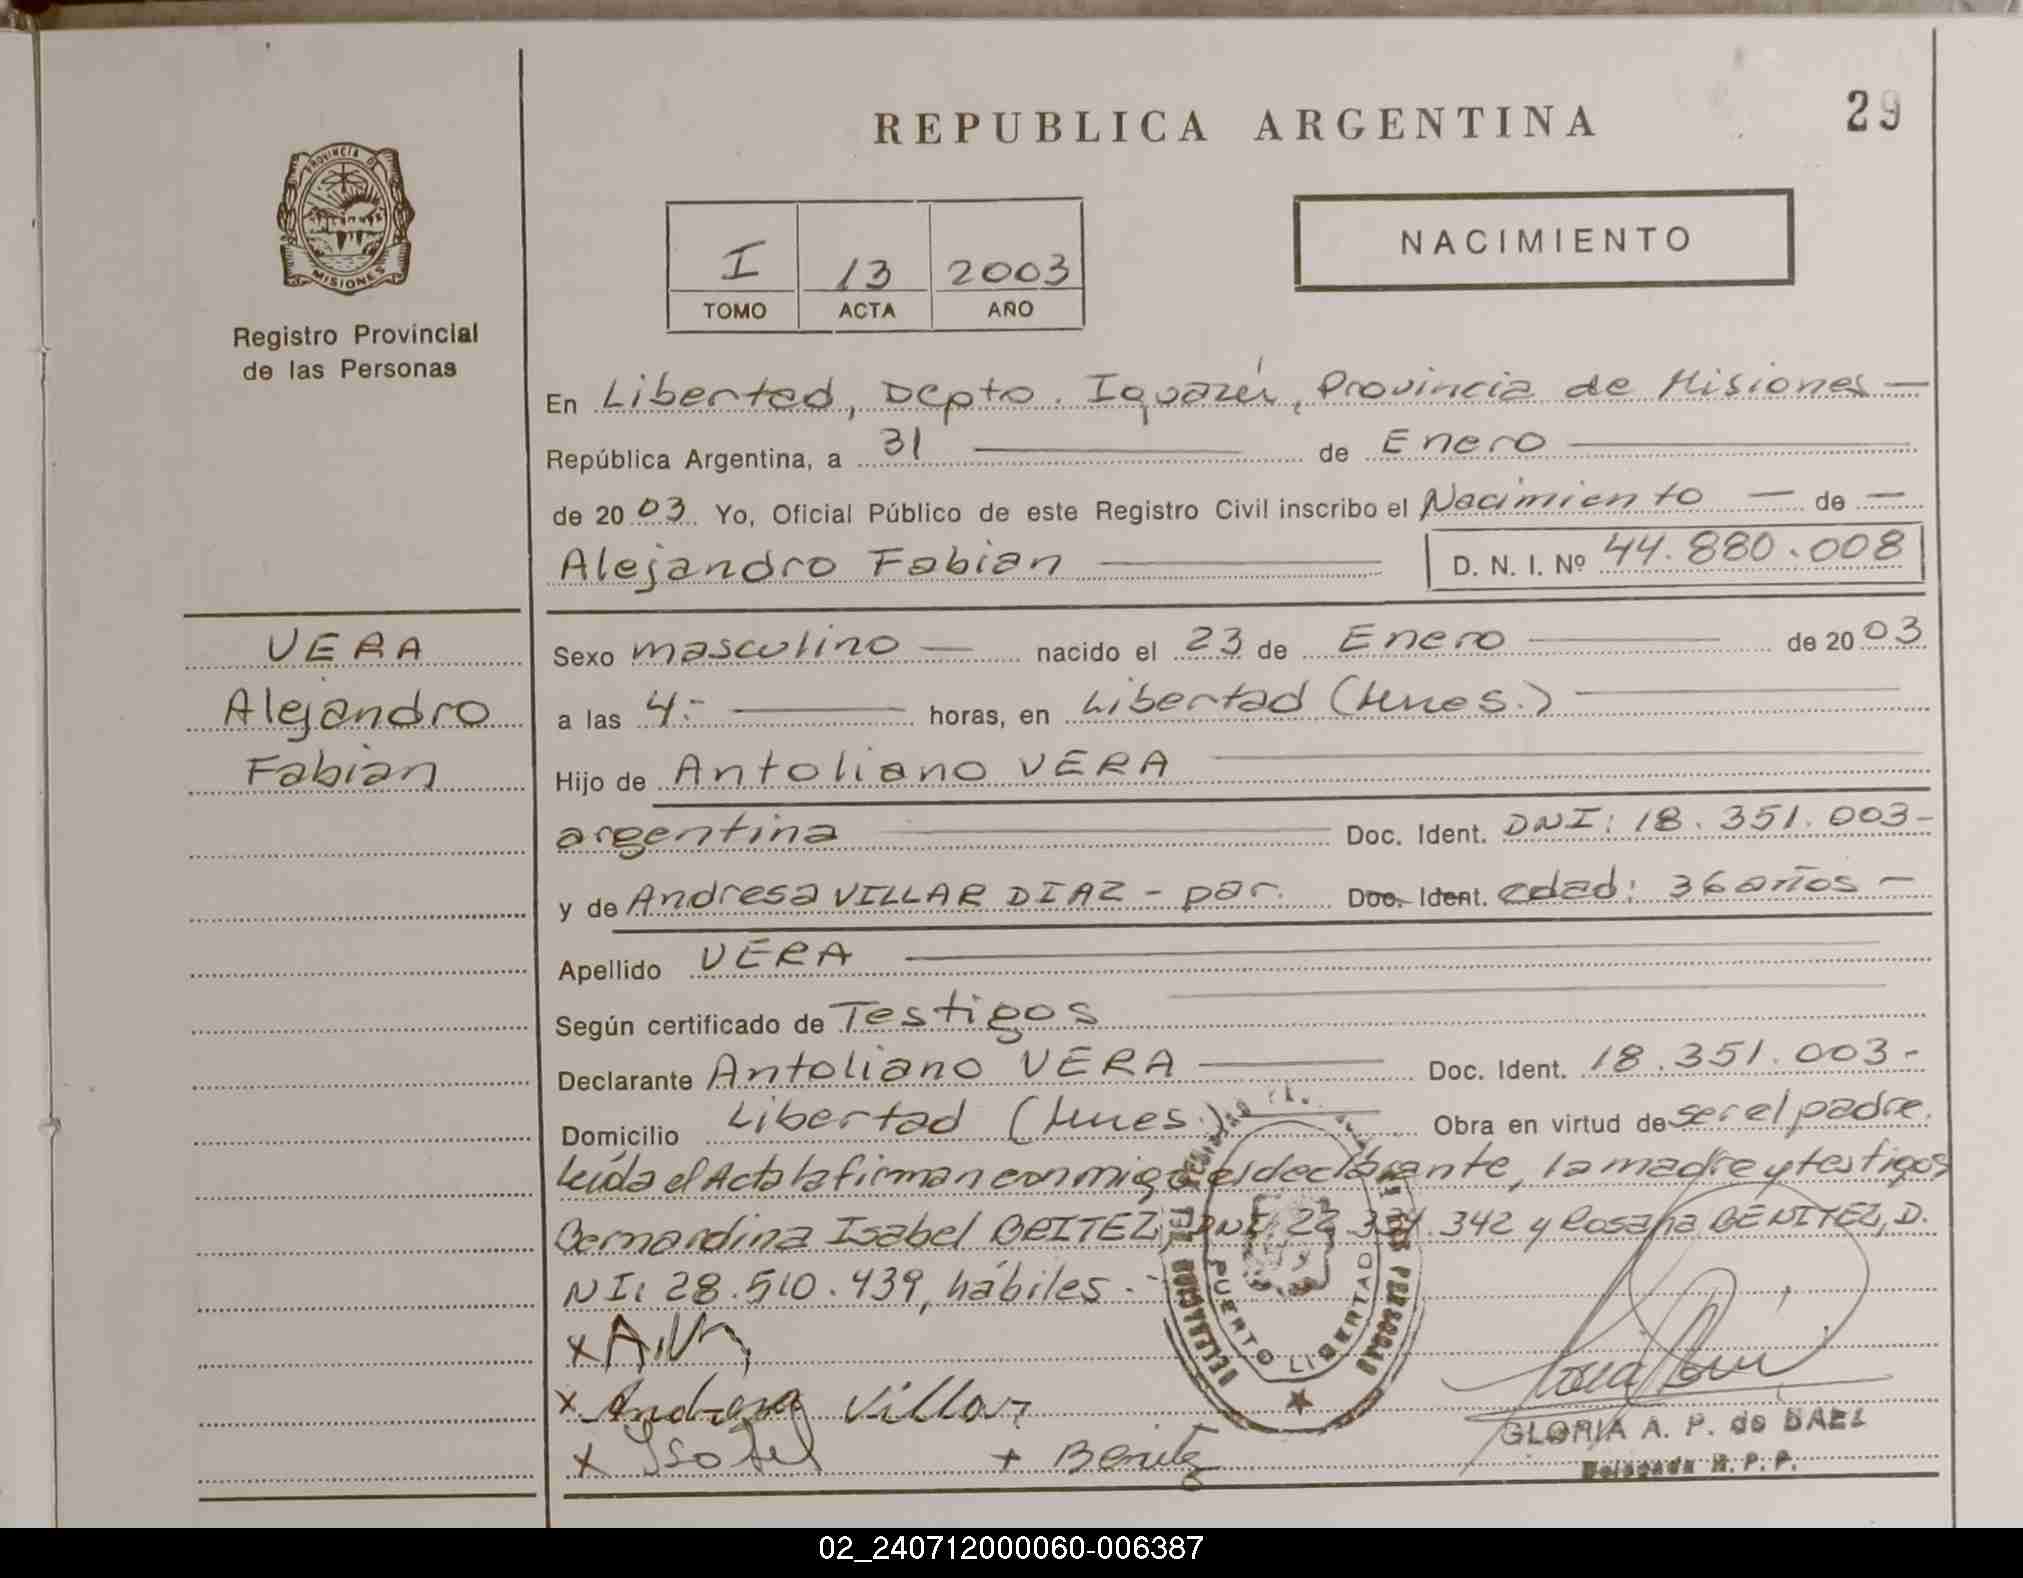 REPUBLICA ARGENTINA
29
PROVINCIA DE
MISIONES
Registro Provincial
de las Personas
I 13 2003
TOMO ACTA AÑO
NACIMIENTO
En Libertad, Depto. Iguazú, Provincia de Misiones —
República Argentina, a 31 — de Enero —
de 2003. Yo, Oficial Público de este Registro Civil inscribo el Nacimiento — de —
Alejandro Fabian — D. N. I. Nº 44.880.008
VERA
Alejandro
Fabian
Sexo masculino — nacido el 23 de Enero — de 2003
a las 4.- — horas, en Libertad (Mnes.) —
Hijo de Antoliano VERA —
argentina — Doc. Ident. DNI: 18.351.003-
y de Andresa VILLAR DIAZ - par. Doc. Ident. edad: 36 años -
Apellido VERA —
Según certificado de Testigos —
Declarante Antoliano VERA — Doc. Ident. 18.351.003-
Domicilio Libertad (Mnes.) — Obra en virtud de ser el padre.
Leída el Acta la firman conmigo el declarante, la madre y testigos
Bernardina Isabel BEITEZ, DNI 22.334.342 y Rosana BENITEZ, D.
NI: 28.510.439, hábiles.-
x A.V.
x Andresa Villar
x Isabel + Benitez
DELEGACION DEL REGISTRO PERSONAS
PUERTO LIBERTAD
GLORIA A. P. de DAEL
Delegada R. P. P.
02_240712000060-006387